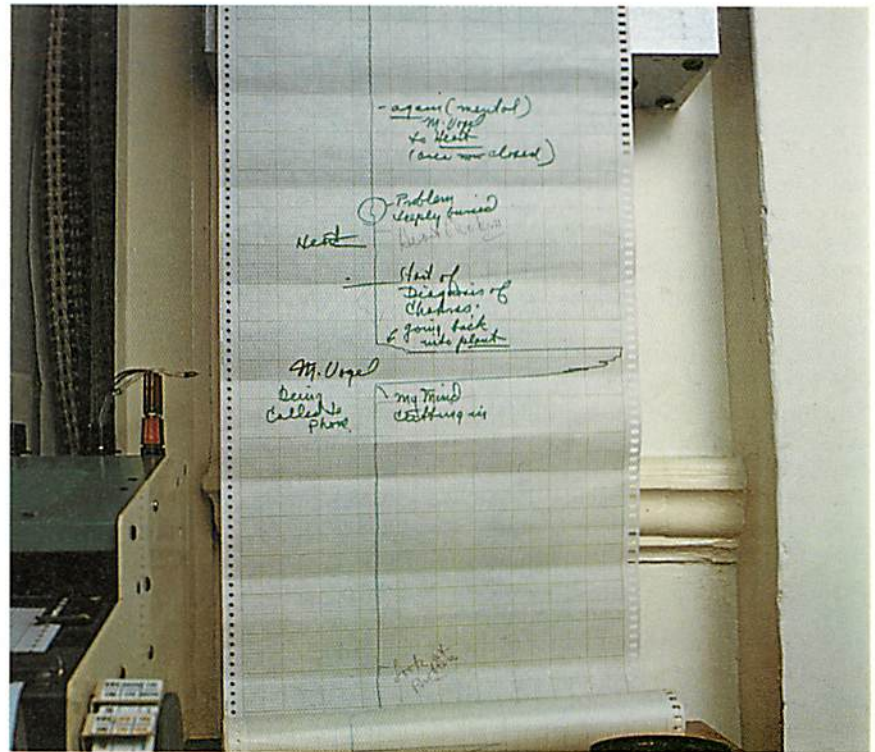 - again (mental)
M. Vogel
to Heart
(area now closed)
Problem
deeply buried
Heart
Start of
Diagnosis of
Chakras.
going back
into plant
M. Vogel
Being
Called to
phone
my Mind
cutting in